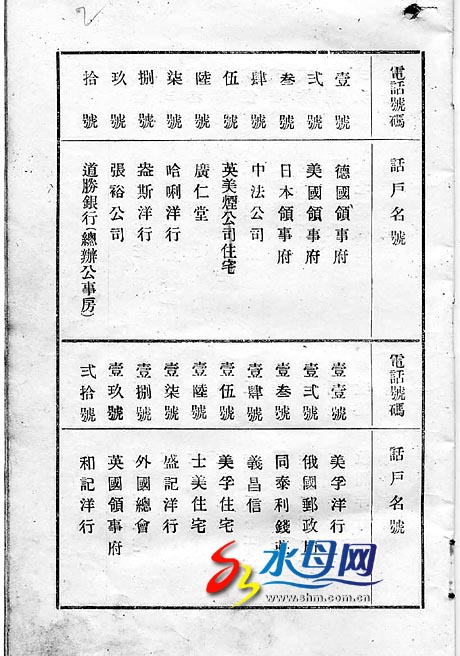 2
電話號碼 話戶名號
壹號 德國領事府
弍號 美國領事府
叁號 日本領事府
肆號 中法公司
伍號 英美煙公司住宅
陸號 廣仁堂
柒號 哈唎洋行
捌號 盎斯洋行
玖號 張裕公司
拾號 道勝銀行(總辦公事房)
電話號碼 話戶名號
壹壹號 美孚洋行
壹弍號 俄國郵政
壹叁號 同泰利錢
壹肆號 義昌信
壹伍號 美孚住宅
壹陸號 士美住宅
壹柒號 盛記洋行
壹捌號 外國總會
壹玖號 英國領事府
弍拾號 和記洋行
水母网
www.shm.com.cn